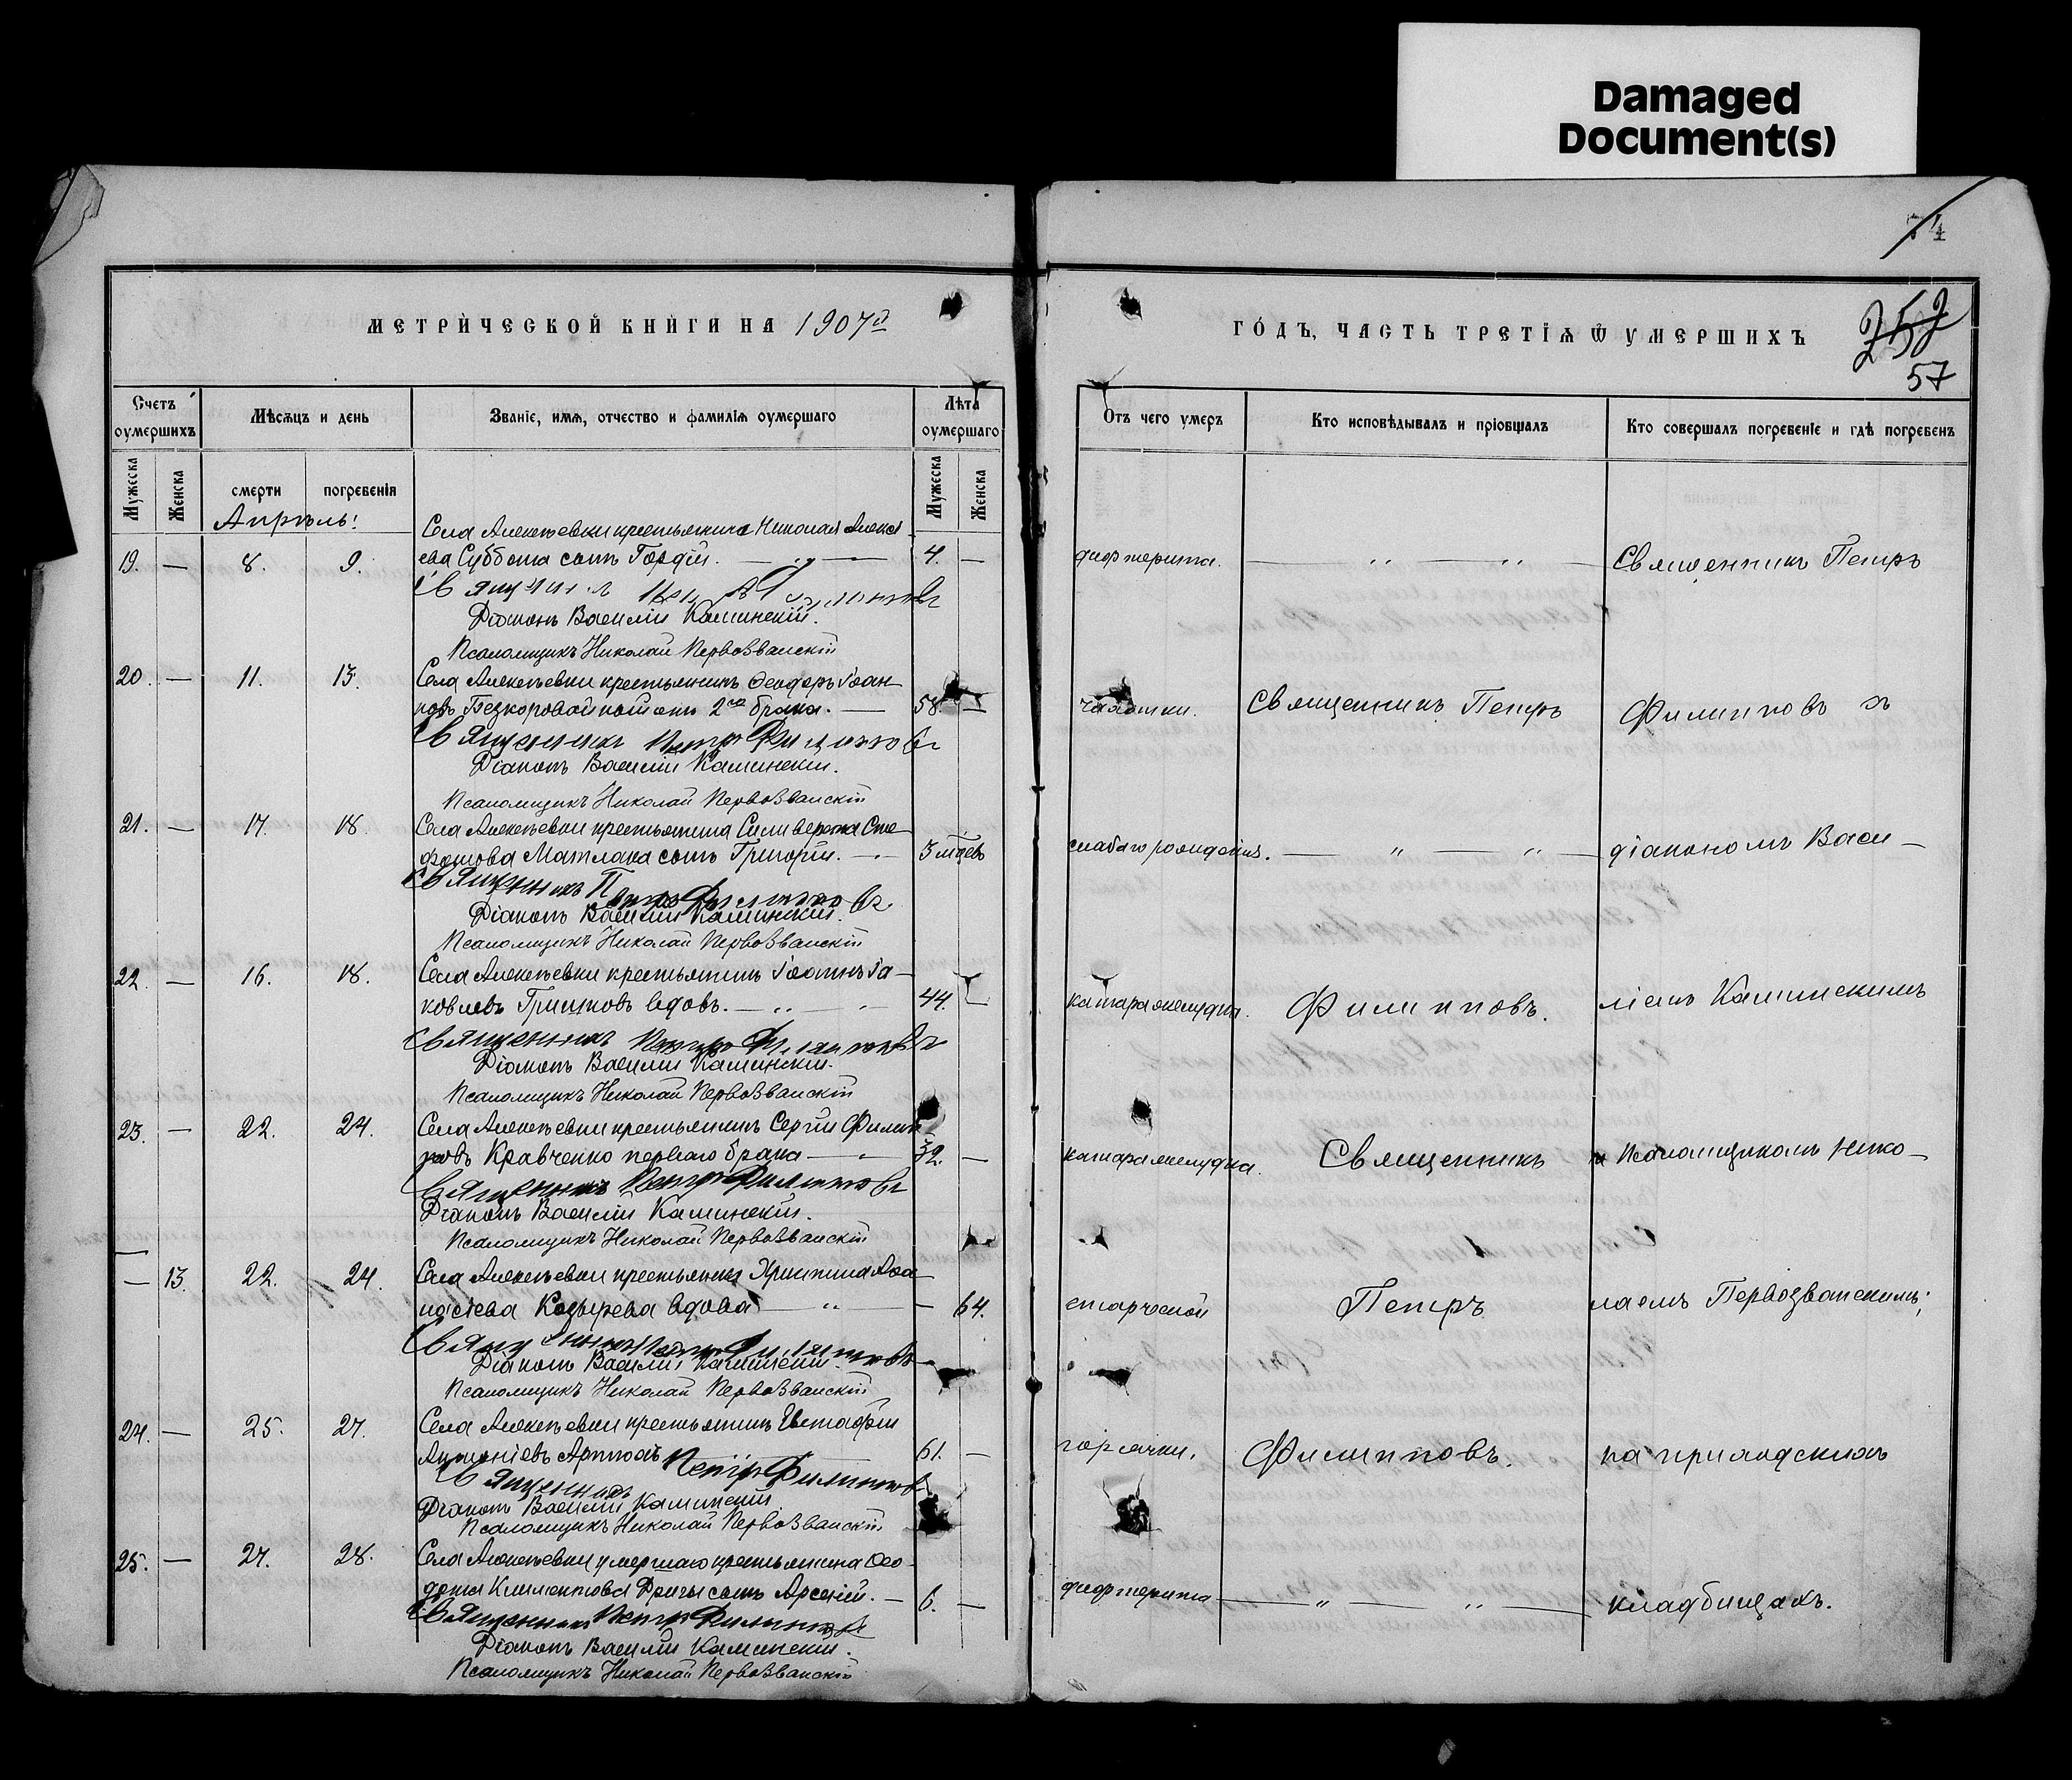 Damaged
Document(s)
74
МЕТРИЧЕСКОЙ КНИГИ НА 1907й
ГОДЪ, ЧАСТЬ ТРЕТІѦ Ѿ УМЕРШИХЪ
252
57
Счетъ оумершихъ
Мѣсѧцъ и день
Званіє, имѧ, отчество и фамиліѧ оумершаго
Лѣта оумершаго
Отъ чего умеръ
Кто исповѣдывалъ и пріобщалъ
Кто совершалъ погребеніє и гдѣ погребенъ
Мужеска
Женска
смерти
погребенія
Мужеска
Женска
Апрѣль:
Села Алексѣевки крестьянина Николая Алексѣ-
19. — 8. 9. ева Суббота сынъ Гордій. — 4. — дифтерита. — „ — „ — Священникъ Петръ
Діаконъ Василій Каминскій.
Псаломщикъ Николай Первозванскій
20. — 11. 13. Села Алексѣевки крестьянинъ Ѳеодоръ Іоан-
новъ Безкоровайный отъ 2го брака. — 58. — чахотки. Священникъ Петръ Филипповъ съ
Священникъ Петръ Филипповъ
Діаконъ Василій Каминскій.
Псаломщикъ Николай Первозванскій
21. — 17. 18. Села Алексѣевки крестьянина Сильверста Сте-
фанова Матлака сынъ Григорій. — 3 мѣсѧ слабаго рожденія. — „ — „ — діакономъ Васи-
Священникъ Петръ Филипповъ
Діаконъ Василій Каминскій.
Псаломщикъ Николай Первозванскій
22. — 16. 18. Села Алексѣевки крестьянинъ Іоаннъ Іа-
ковлевъ Гришковъ вдовъ. — 44. — катара желудка. Филипповъ. ліемъ Каминскимъ
Священникъ Петръ Филипповъ
Діаконъ Василій Каминскій.
Псаломщикъ Николай Первозванскій
23. — 22. 24. Села Алексѣевки крестьянинъ Сергій Филип-
повъ Кравченко перваго брака — 32. — катара желудка. Священникъ и Псаломщикомъ Нико-
Священникъ Петръ Филипповъ
Діаконъ Василій Каминскій.
Псаломщикъ Николай Первозванскій
— 13. 22. 24. Села Алексѣевки крестьянка Христина Аѳа-
насіева Козырева вдова — „ — 64. старческой Петръ лаемъ Первозванскимъ;
Священникъ Петръ Филипповъ
Діаконъ Василій Каминскій.
Псаломщикъ Николай Первозванскій
24. — 25. 27. Села Алексѣевки крестьянинъ Евстафій
Антоніевъ 61. — горячки. Филипповъ. на приходскихъ
Священникъ Петръ Филипповъ
Діаконъ Василій Каминскій
Псаломщикъ Николай Первозванскій
25. — 27. 28. Села Алексѣевки умершаго крестьянина Ѳео-
дота Климентова сынъ Арсеній. — 6. — дифтерита — „ — „ — кладбищахъ.
Священникъ Петръ Филипповъ
Діаконъ Василій Каминскій.
Псаломщикъ Николай Первозванскій